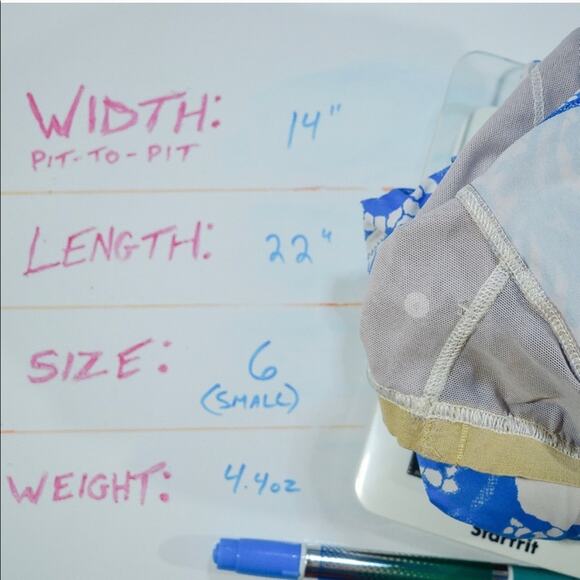 WIDTH: 14"
PIT-TO-PIT
LENGTH: 22"
SIZE: 6
(SMALL)
WEIGHT: 4.4oz
Starfrit